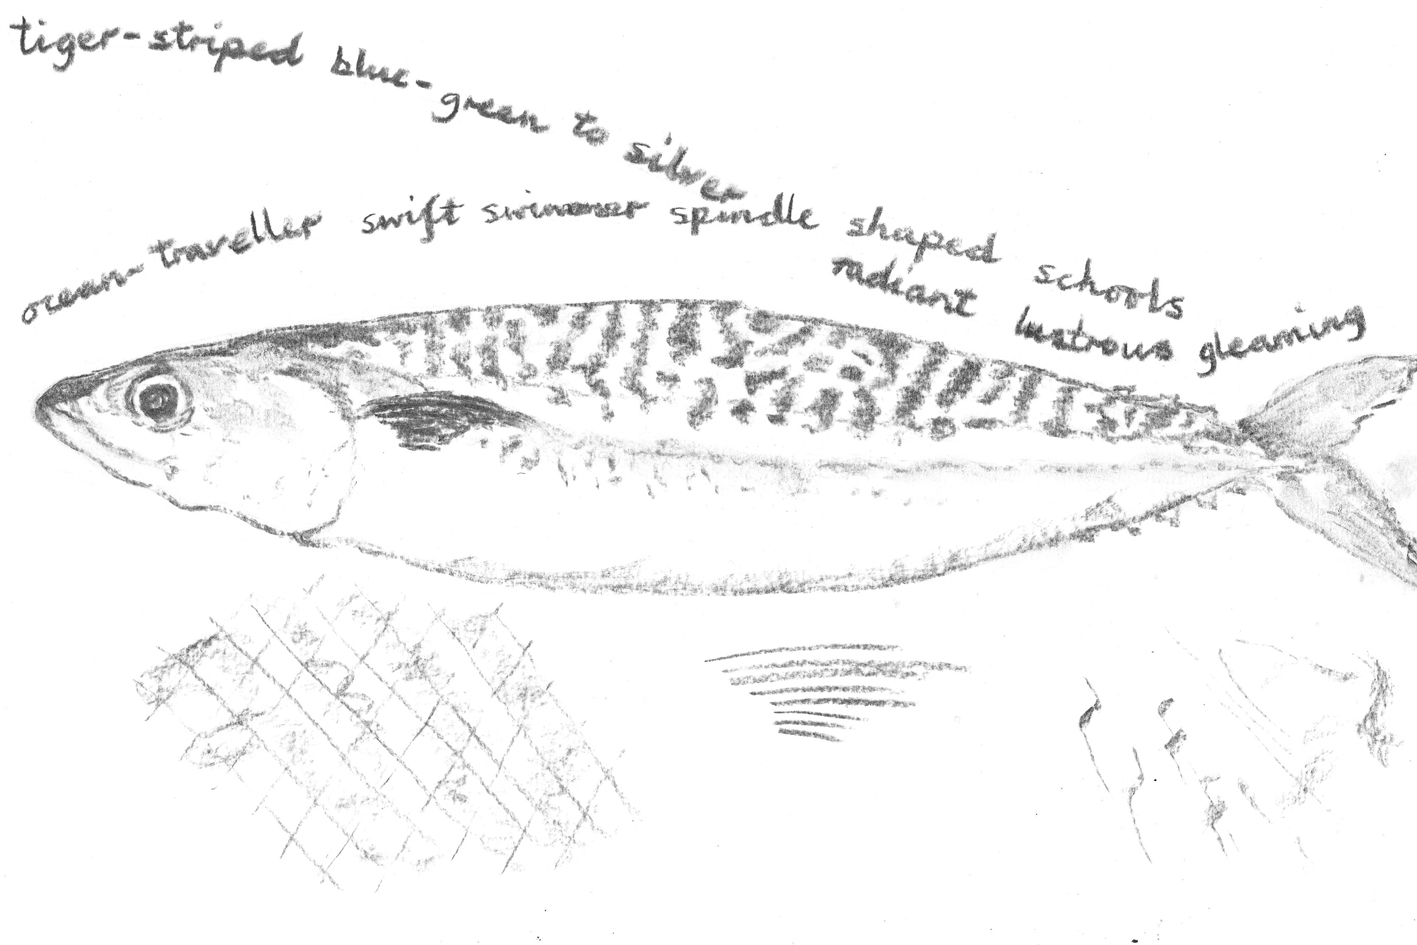 tiger-striped blue-green to silver
ocean-traveller swift swimmer spindle shaped schools
radiant lustrous gleaming